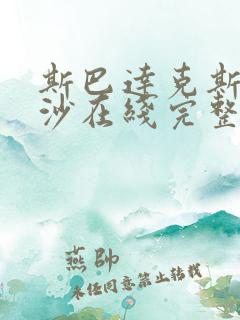 斯巴达克斯
沙在线完整
燕帅
未经同意禁止转载